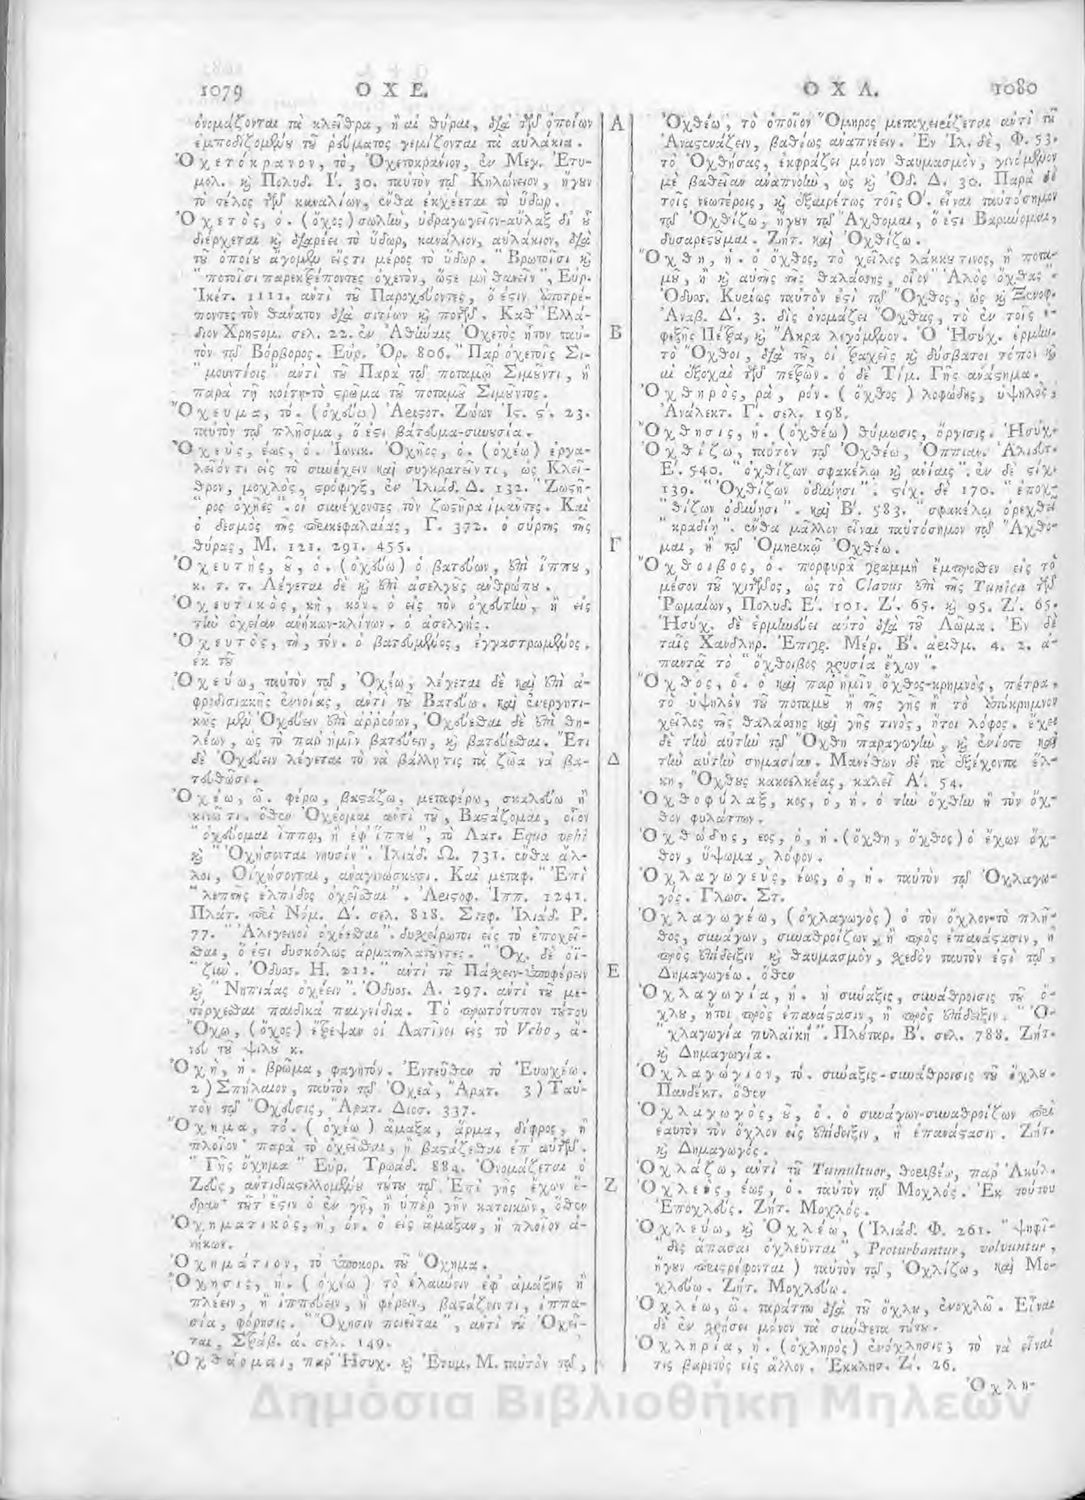 1079 Ο Χ Ε.
ὀνομάζονται τὰ κλεῖθρα, ἢ αἱ θύραι, διὰ τῶν ὁποίων
ἐμποδιζομένου τοῦ ῥεύματος γεμίζονται τὰ αὐλάκια.
Ὀχετόκρανον, τὸ, Ὀχετοκράνιον, ἐν Μεγ. Ἐτυ-
μολ. καὶ Πολυδ. Ι'. 30. ταὐτὸν τῷ Κηλώνειον, ἤγουν
τὸ τέλος τῶν καναλίων, ἔνθα ἐκχέεται τὸ ὕδωρ.
Ὀχετὸς, ὁ. (ὄχος) σωλὴν, ὑδραγωγεῖον-αὖλαξ δι' οὗ
διέρχεται καὶ διαρέει τὸ ὕδωρ, κανάλιον, αὐλάκιον, διὰ
τοῦ ὁποίου ἄγομεν εἴς τι μέρος τὸ ὕδωρ. " Βρωτοῖσι καὶ
" ποτοῖσι παρεκτρέποντες ὀχετὸν, ὥστε μὴ θανεῖν ", Εὐρ.
Ἱκέτ. 1111. ἀντὶ τοῦ Παροχεύοντες, ὅ ἐστιν ἀποτρέ-
ποντες τὸν θάνατον διὰ σιτίων καὶ ποτῶν. Καθ' Ἑλλά-
διον Χρηστομ. σελ. 22. ἐν Ἀθήναις Ὀχετὸς ἦτον ταὐ-
τὸν τῷ Βόρβορος. Εὐρ. Ὀρ. 806. " Παρ' ὀχετοῖς Σι-
" μουντίοις " ἀντὶ τοῦ Παρὰ τῷ ποταμῷ Σιμοῦντι, ἢ
παρὰ τῇ κοίτῃ-τὸ στρῶμα τοῦ ποταμοῦ Σιμοῦντος.
Ὄχευμα, τό. (ὀχεύω) Ἀριστοτ. Ζώων Ἱστ. ς'. 23.
ταὐτὸν τῷ πλήσμα, ὅ ἐστι βάτευμα-συνουσία.
Ὀχεὺς, έως, ὁ. Ἰωνικ. Ὀχῆος, ὁ. (ὀχέω) ἐργα-
λεῖόν τι εἰς τὸ συνέχειν καὶ συγκρατεῖν τι, ὡς Κλεῖ-
θρον, μοχλὸς, στρόφιγξ, ἐν Ἰλιάδ. Δ. 132. " Ζωστῆ-
" ρος ὀχῆες ". οἱ συνέχοντες τὸν ζωστῆρα ἱμάντες. Καὶ
ὁ δεσμὸς τῆς περικεφαλαίας, Γ. 372. ὁ σύρτης τῆς
θύρας, Μ. 121. 291. 455.
Ὀχευτὴς, οῦ, ὁ. (ὀχεύω) ὁ βατεύων, ἐπὶ ἵππου,
κ. τ. τ. Λέγεται δὲ καὶ ἐπὶ ἀσελγοῦς ἀνθρώπου.
Ὀχευτικὸς, κὴ, κὸν. ὁ εἰς τὸν ὀχευτὴν, ἢ εἰς
τὴν ὀχείαν ἀνήκων-κλίνων. ὁ ἀσελγής.
Ὀχευτὸς, τὴ, τὸν. ὁ βατευμένος, ἐγγαστρωμένος.
ἐκ τοῦ
Ὀχεύω, ταὐτὸν τῷ, Ὀχέω, λέγεται δὲ καὶ ἐπὶ ἀ-
φροδισιακῆς ἐννοίας, ἀντὶ τοῦ Βατεύω. καὶ ἐνεργητι-
κῶς μὲν Ὀχεύειν ἐπὶ ἀρρένων, Ὀχεύεσθαι δὲ ἐπὶ θη-
λέων, ὡς τὸ παρ' ἡμῖν βατεύειν, καὶ βατεύεσθαι. Ἔτι
δὲ Ὀχεύειν λέγεται τὸ νὰ βάλλῃ τις τὰ ζῶα νὰ βα-
τευθῶσι.
Ὀχέω, ῶ. φέρω, βαστάζω, μεταφέρω, σκαλεύω ἢ
κινῶ τι. ὅθεν Ὀχέομαι ἀντὶ τοῦ, Βαστάζομαι, οἷον
" ὀχεύομαι ἵππῳ, ἢ ἐφ' ἵππου ", τὸ Λατ. Equo vehi
καὶ " Ὀχήσονται νηυσίν ". Ἰλιάδ. Ω. 731. ἔνθα ἄλ-
λοι, Οἰχήσονται, ἀναγινώσκουσι. Καὶ μεταφ. " Ἐπὶ
" λεπτῆς ἐλπίδος ὀχεῖσθαι ". Ἀριστοφ. Ἱππ. 1241.
Πλάτ. περὶ Νόμ. Δ'. σελ. 818. Στεφ. Ἰλιάδ. Ρ.
77. " Ἀλεγεινοὶ ὀχέεσθαι ". δυσχείρωτοι εἰς τὸ ἐποχεῖ-
σθαι, ὅ ἐστι δυσκόλως ἁρματηλατοῦντες. " Ὀχ. δὲ ὀϊ-
" ζύν. Ὀδυσ. Η. 211. " ἀντὶ τοῦ Πάσχειν-ὑποφέρειν
καὶ " Νηπιάας ὀχέειν ". Ὀδυσ. Α. 297. ἀντὶ τοῦ με-
τέρχεσθαι παιδικὰ παιγνίδια. Τὸ πρωτότυπον τούτου
Ὄχω, (ὄχος) ἔτρεψαν οἱ Λατῖνοι εἰς τὸ Veho, ἄ-
νευ τοῦ ψιλοῦ κ.
Ὀχὴ, ἡ. βρῶμα, φαγητόν. Ἐντεῦθεν τὸ Εὐωχέω.
2) Σπήλαιον, ταὐτὸν τῷ Ὀχεὰ, Ἄρατ. 3) Ταὐ-
τὸν τῷ Ὄχευσις, Ἄρατ. Διοσ. 337.
Ὄχημα, τό. (ὀχέω) ἅμαξα, ἅρμα, δίφρος, ἢ
πλοῖον παρὰ τὸ ὀχεῖσθαι, ἢ βαστάζεσθαι ἐπ' αὐτῶν.
" Γῆς ὄχημα " Εὐρ. Τρωάδ. 884. Ὀνομάζεται ὁ
Ζεὺς, ἀντιδιαστελλομένου τούτου τῷ Ἐπὶ γῆς ἔχων ἕ-
δραν τοῦτ' ἔστιν ὁ ἐν γῇ, ἢ ὑπὲρ γῆν κατοικῶν, ὅθεν
Ὀχηματικὸς, ὴ, ὸν. ὁ εἰς ἅμαξαν, ἢ πλοῖον ἀ-
νήκων.
Ὀχημάτιον, τὸ ὑποκορ. τοῦ Ὄχημα.
Ὄχησις, ἡ. (ὀχέω) τὸ ἐλαύνειν ἐφ' ἁμάξης ἢ
πλέειν, ἢ ἱππεύειν, ἢ φέρειν, βαστάζειν τι, ἱππα-
σία, φόρησις. " Ὄχησιν ποιεῖται ", ἀντὶ τοῦ Ὀχεῖ-
ται, Στράβ. ά. σελ. 149.
Ὀχθάομαι, παρ' Ἡσυχ. καὶ Ἐτυμ. Μ. ταὐτὸν τῷ,
Α
Β
Γ
Δ
Ε
Ζ
Ο Χ Λ. 1080
Ὀχθέω, τὸ ὁποῖον Ὅμηρος μεταχειρίζεται ἀντὶ τοῦ
Ἀναστενάζειν, βαθέως ἀναπνέειν. Ἐν Ἰλ. δὲ, Φ. 53.
τὸ Ὀχθήσας, ἐκφράζει μόνον θαυμασμὸν, γινόμενον
μὲ βαθεῖαν ἀναπνοὴν, ὡς καὶ Ὀδ. Δ. 30. Παρὰ δὲ
τοῖς νεωτέροις, καὶ ἐξαιρέτως τοῖς Ο'. εἶναι ταυτόσημον
τῷ Ὀχθίζω, ἤγουν τῷ Ἄχθομαι, ὅ ἐστι Βαρύνομαι,
δυσαρεστοῦμαι. Ζήτ. καὶ Ὀχθίζω.
Ὄχθη, ἡ. ὁ ὄχθος, τὸ χεῖλος λάκκου τινος, ἢ ποτα-
μοῦ, ἢ καὶ αὐτῆς τῆς θαλάσσης, οἷον " Ἁλὸς ὄχθας "
Ὀδυσ. Κυρίως ταὐτόν ἐστι τῷ Ὄχθος, ὡς καὶ Ξενοφ.
Ἀναβ. Δ'. 3. δὶς ὀνομάζει Ὄχθας, τὸ ἐν τοῖς ἐ-
φεξῆς Πέτρα, καὶ Ἄκρα λεγόμενον. Ὁ Ἡσύχ. ἑρμην.
τὸ Ὄχθοι, διὰ τοῦ, οἱ τραχεῖς καὶ δύσβατοι τόποι καὶ
αἱ ἐξοχαὶ τῶν πετρῶν. ὁ δὲ Τίμ. Γῆς ἀνάστημα.
Ὀχθηρὸς, ρὰ, ρόν. (ὄχθος) λοφώδης, ὑψηλὸς,
Ἀνάλεκτ. Γ'. σελ. 198.
Ὄχθησις, ἡ. (ὀχθέω) θύμωσις, ὄργισις. Ἡσύχ.
Ὀχθίζω, ταὐτὸν τῷ Ὀχθέω, Ὀππιαν. Ἁλιευτ.
Ε'. 540. " ὀχθίζων σφακέλῳ καὶ ἀνίαις ". ἐν δὲ στίχ.
139. " Ὀχθίζων ὀδύνῃσι ". στίχ. δὲ 170. " ἐποχ-
" θίζων ὀδύνῃσι ". καὶ Β'. 583. " σφακέλῳ ὀρεχθεῖ
" κραδίη ". ἔνθα μᾶλλον εἶναι ταυτόσημον τῷ Ἄχθο-
μαι, ἢ τῷ Ὁμηρικῷ Ὀχθέω.
Ὄχθοιβος, ὁ. πορφυρᾶ γραμμὴ ἔμπροσθεν εἰς τὸ
μέσον τοῦ χιτῶνος, ὡς τὸ Clavus ἐπὶ τῆς Tunica τῶν
Ῥωμαίων, Πολυδ. Ε'. 101. Ζ'. 65. καὶ 95. Ζ'. 65.
Ἡσύχ. δὲ ἑρμηνεύει αὐτὸ διὰ τοῦ Λῶμα. Ἐν δὲ
ταῖς Χανδληρ. Ἐπιγρ. Μέρ. Β'. ἀριθμ. 4. 2. ἀ-
παντᾷ τὸ " ὄχθοιβος χρυσία ἔχων ".
Ὄχθος, ὁ. ὁ καὶ παρ' ἡμῖν ὄχθος-κρημνὸς, πέτρα,
τὸ ὑψηλὸν τοῦ ποταμοῦ ἢ τῆς γῆς ἢ τὸ ἀπόκρημνον
χεῖλος τῆς θαλάσσης καὶ γῆς τινὸς, ἤτοι λόφος. ἔχει
δὲ τὴν αὐτὴν τῷ Ὄχθη παραγωγὴν, καὶ ἐνίοτε καὶ
τὴν αὐτὴν σημασίαν. Μανέθων δὲ τὰ ἐξέχοντα ἕλ-
κη, Ὄχθους κακοελκέας, καλεῖ Α'. 54.
Ὀχθοφύλαξ, κος, ὁ, ἡ. ὁ τὴν ὄχθην ἢ τὸν ὄχ-
θον φυλάττων.
Ὀχθώδης, εος, ὁ, ἡ. (ὄχθη, ὄχθος) ὁ ἔχων ὄχ-
θον, ὕψωμα, λόφον.
Ὀχλαγωγεὺς, έως, ὁ, ἡ. ταὐτὸν τῷ Ὀχλαγω-
γός. Γλωσ. Στ.
Ὀχλαγωγέω, (ὀχλαγωγὸς) ὁ τὸν ὄχλον-τὸ πλῆ-
θος, συνάγων, συναθροίζων, ἢ πρὸς ἐπανάστασιν, ἢ
πρὸς ἐπίδειξιν καὶ θαυμασμὸν, σχεδὸν ταὐτόν ἐστὶ τῷ,
Δημαγωγέω. ὅθεν
Ὀχλαγωγία, ἡ. ἡ σύναξις, συνάθροισις τοῦ ὄ-
χλου, ἤτοι πρὸς ἐπανάστασιν, ἢ πρὸς ἐπίδειξιν. " Ὀ-
" χλαγωγία πυλαϊκή ". Πλούταρ. Β'. σελ. 788. Ζήτ.
καὶ Δημαγωγία.
Ὀχλαγώγιον, τό. σύναξις-συνάθροισις τοῦ ὄχλου.
Πανδέκτ. ὅθεν
Ὀχλαγωγὸς, οῦ, ὁ. ὁ συνάγων-συναθροίζων περὶ
ἑαυτὸν τὸν ὄχλον εἰς ἐπίδειξιν, ἢ ἐπανάστασιν. Ζήτ.
καὶ Δημαγωγός.
Ὀχλάζω, ἀντὶ τοῦ Tumultuor, θορυβέω, παρ' Ἀκύλ.
Ὀχλεὺς, έως, ὁ. ταὐτὸν τῷ Μοχλός. Ἐκ τούτου
Ἐποχλεύς. Ζήτ. Μοχλός.
Ὀχλεύω, καὶ Ὀχλέω, (Ἰλιάδ. Φ. 261. " ψηφῖ-
" δες ἅπασαι ὀχλεῦνται ", Proturbantur, volvuntur,
ἤγουν περιστρέφονται) ταὐτὸν τῷ, Ὀχλίζω, καὶ Μο-
χλεύω. Ζήτ. Μοχλεύω.
Ὀχλέω, ῶ. ταράττω διὰ τοῦ ὄχλου, ἐνοχλῶ. Εἶναι
δὲ ἐν χρήσει μόνον τὰ σύνθετα τούτου.
Ὀχληρία, ἡ. (ὀχληρὸς) ἐνόχλησις, τὸ νὰ εἶναί
τις βαρετὸς εἰς ἄλλον. Ἐκκλησ. Ζ'. 26.
Ὀχλη-
Δημόσια Βιβλιοθήκη Μηλεών